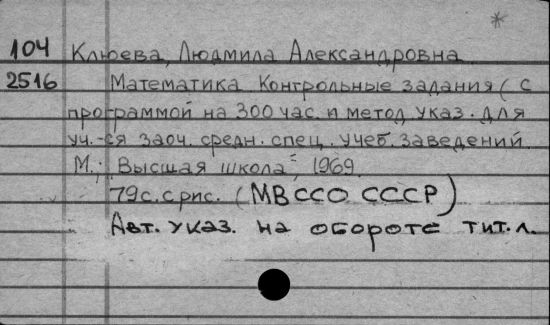 104 Клюева, Людмила Александровна.
2516 Математика. Контрольные задания (с
программой на 300 час. и метод. указ. для
уч.-ся заоч. средн. спец. учеб. заведений.
М., "Высшая школа", 1969.
79 с. с рис. (МВССО СССР)
Авт. указ. на обороте тит. л.